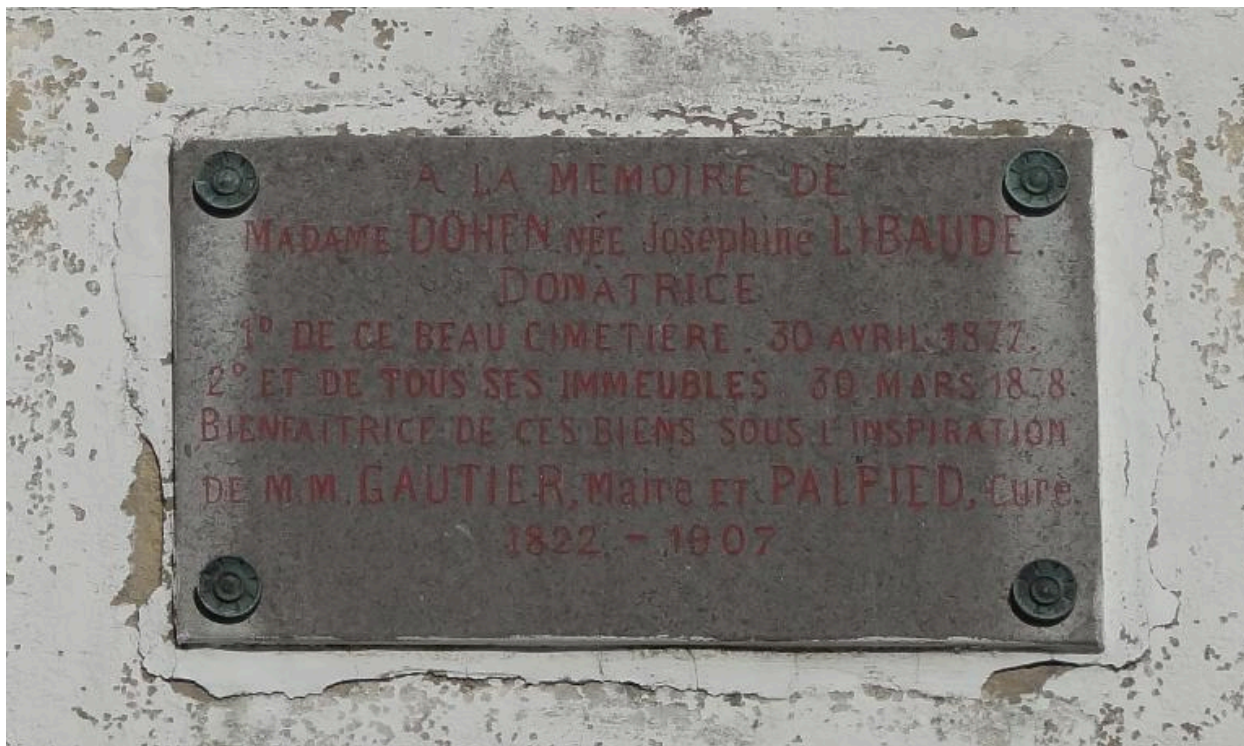 A LA MÉMOIRE DE
MADAME DOHEN NÉE Joséphine LIBAUDE
DONATRICE
1º DE CE BEAU CIMETIÈRE. 30 AVRIL 1877.
2º ET DE TOUS SES IMMEUBLES 30 MARS 1878.
BIENFAITRICE DE CES BIENS SOUS L'INSPIRATION
DE M.M. GAUTIER, Maire ET PALPIED, Curé.
1822 - 1907